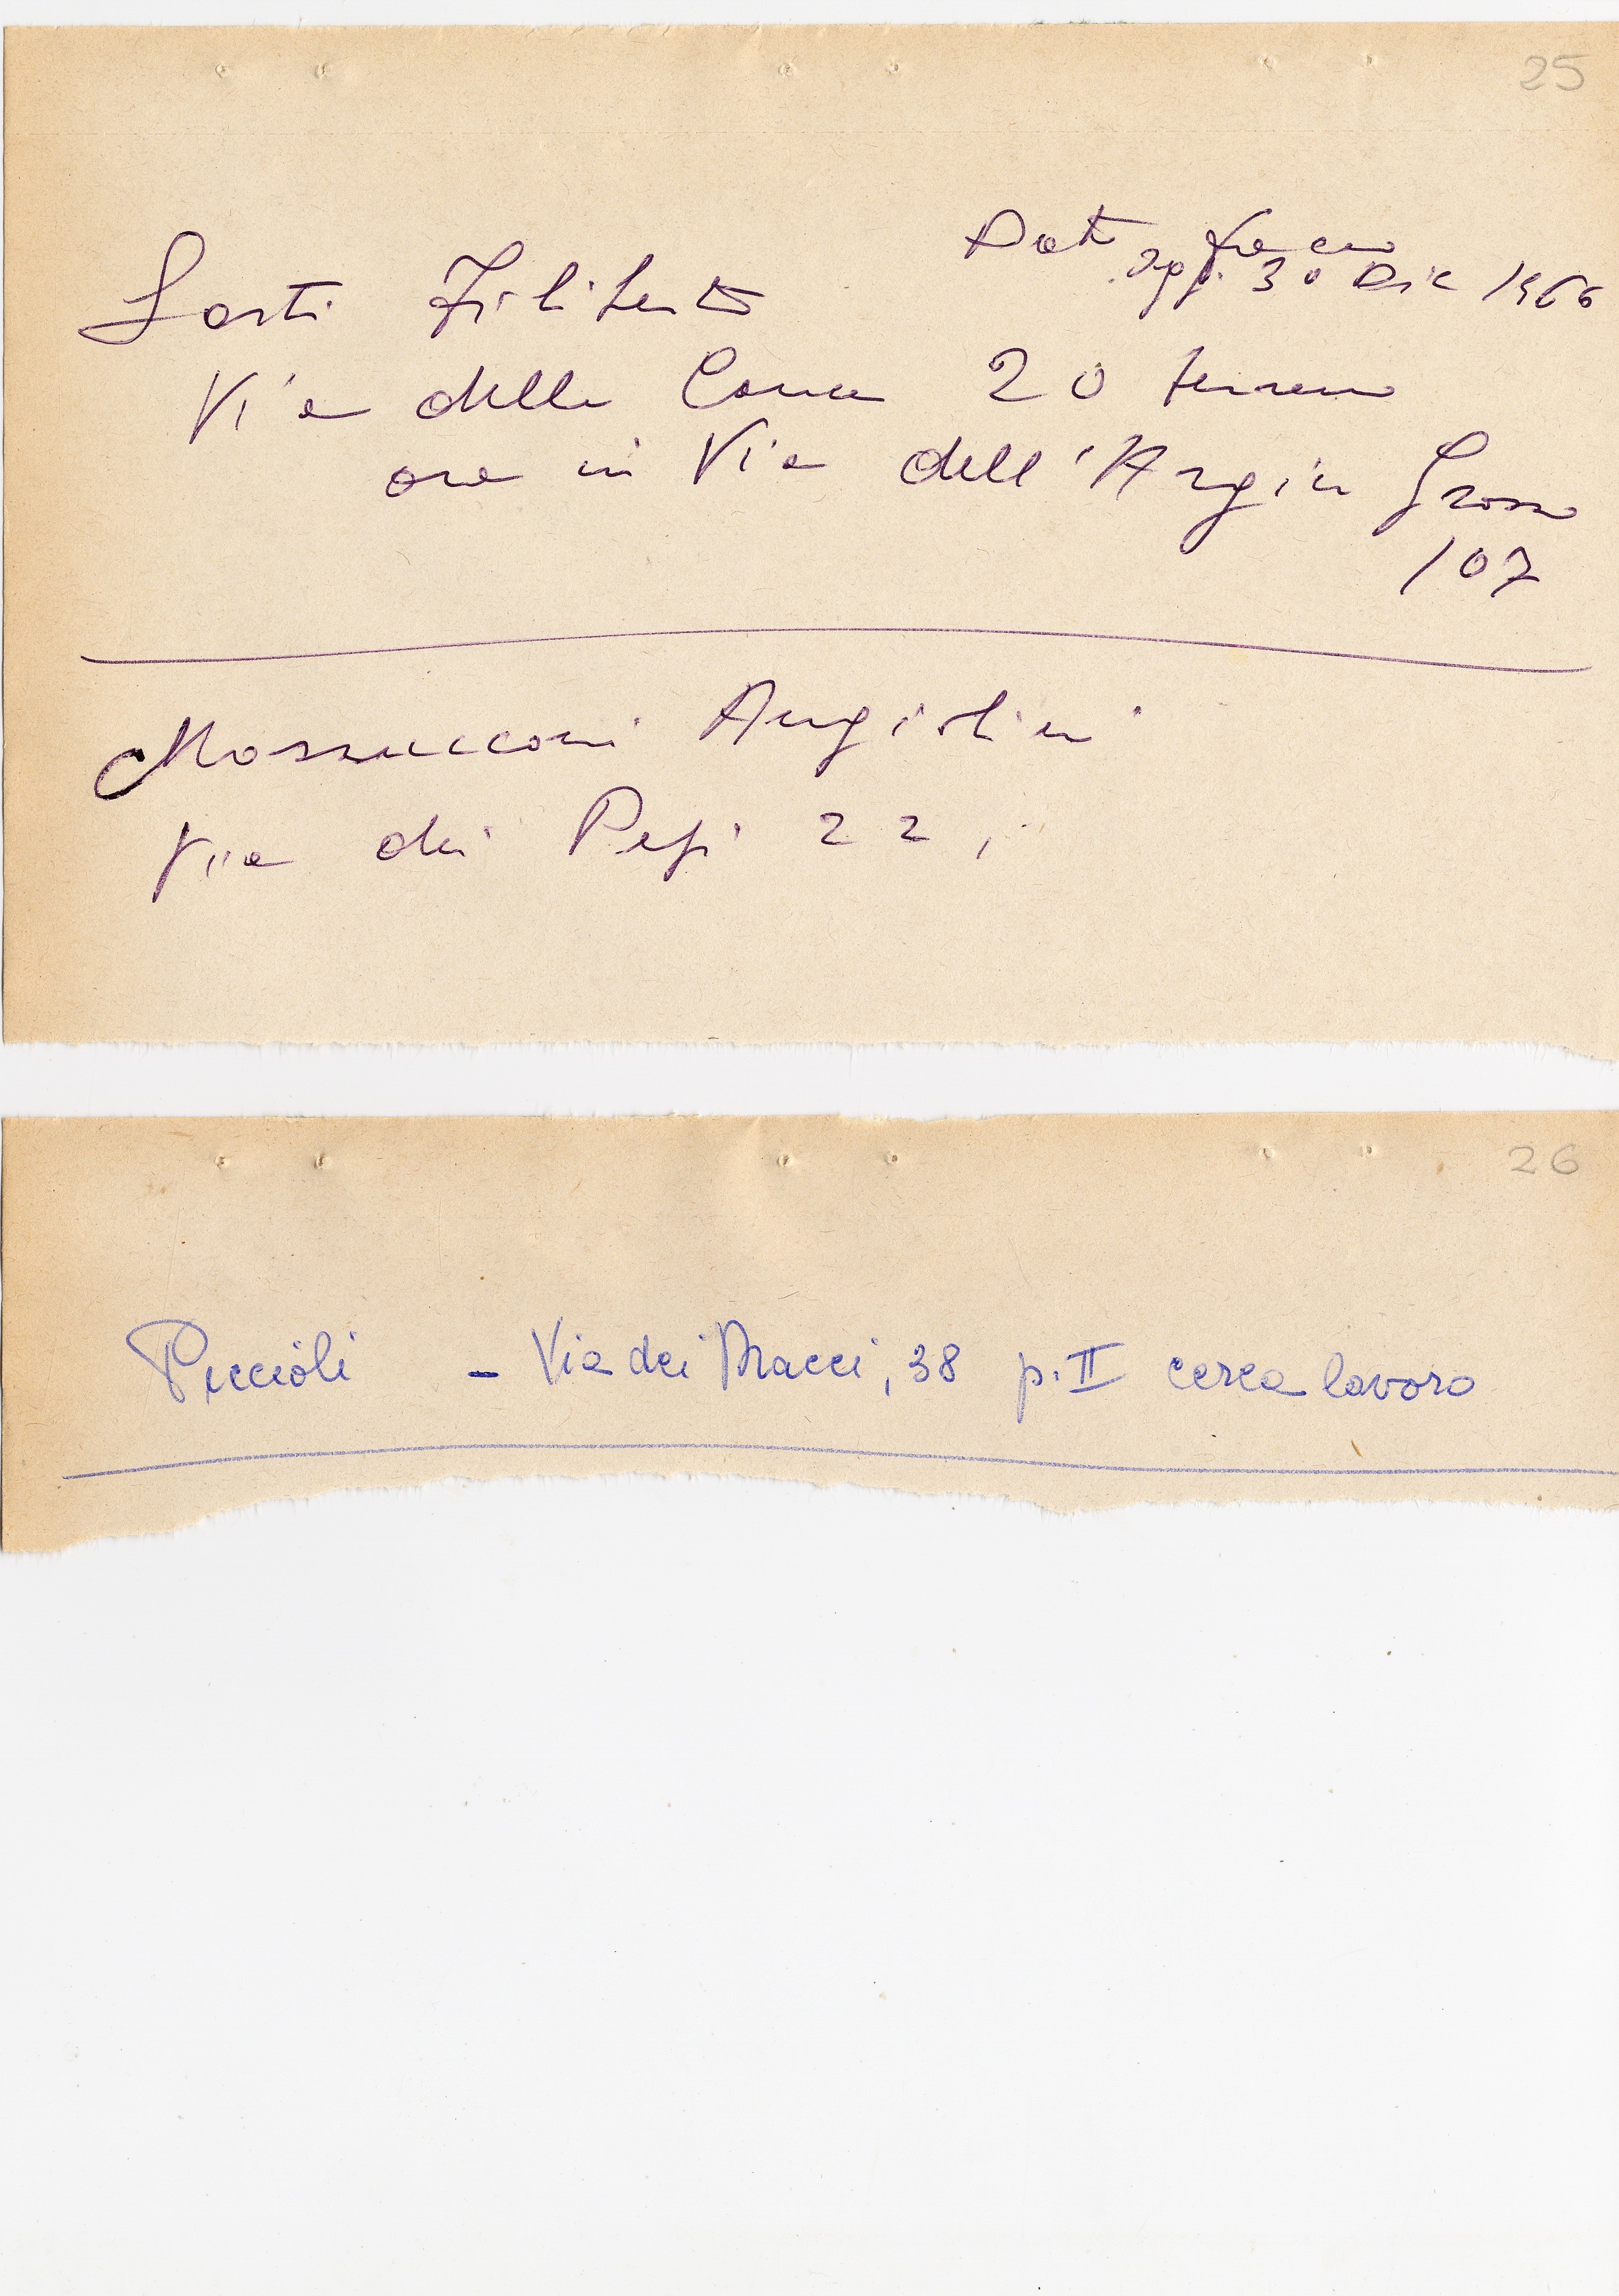 25
Dato
oggi 30 Dic 1966
Sarti Filiberto
Via delle Conce 20 terreno
ora in Via dell'Argin Grosso
107
Angiolini
Via dei Pepi 22
26
Piccioli - Via dei Macci, 38 p. II cerca lavoro